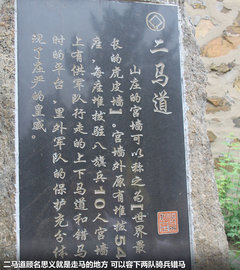 二马道
山庄的宫墙可以称之为【世界最
长的虎皮墙】宫墙外原有堆拔54
座，每座堆拔驻八旗兵10人宫墙
上有供军队行走的上下马道和错马
时的平台，里外军队的保护充分体
现了庄严的皇威。
二马道顾名思义就是走马的地方 可以容下两队骑兵错马